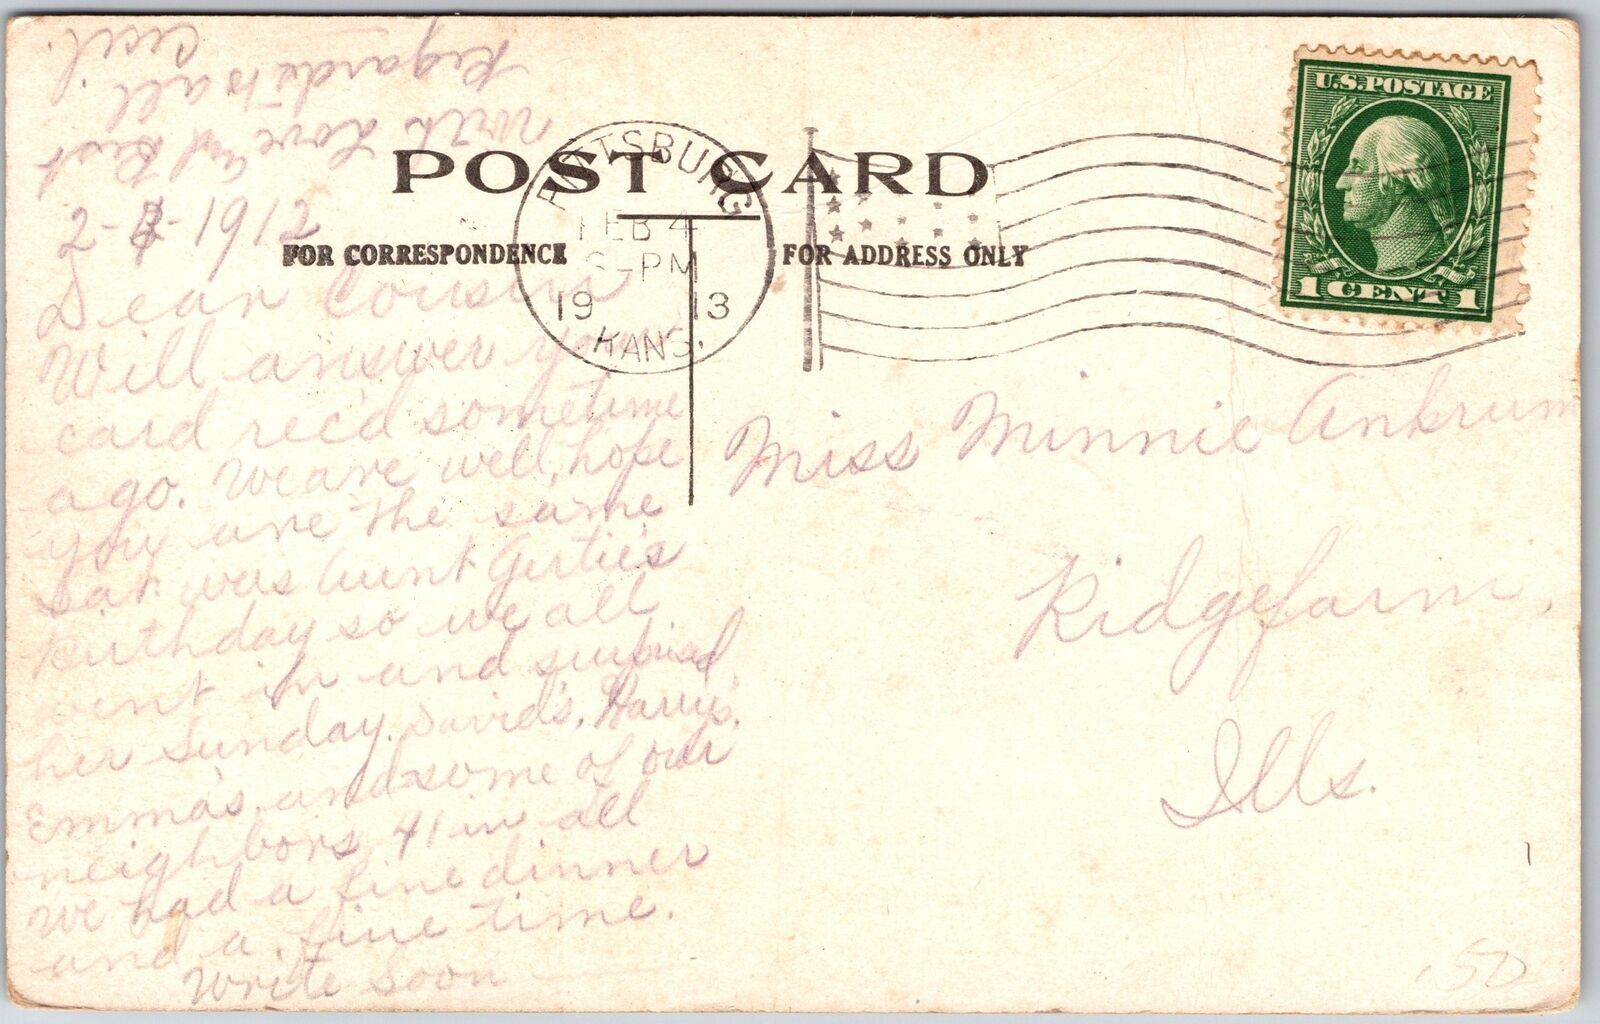 POST CARD
FOR CORRESPONDENCE
FOR ADDRESS ONLY
PITTSBURG
FEB 4
-PM
19 13
KANS.
U.S.POSTAGE
1 CENT 1
2-3-1912
Dear Cousin
Will answer your
card rec'd sometime
ago. We are well, hope
you are the same
Sat. was Aunt Gertie's
Birthday so we all
went in and surprised
her Sunday. David's, Harry's,
Emma's, and some of our
neighbors 41 in all
We had a fine dinner
and a fine time.
Write Soon
With Love and Best
Regards to all
Cecil.
Miss Minnie Ankrum
Ridgefarm,
Ills.
.50